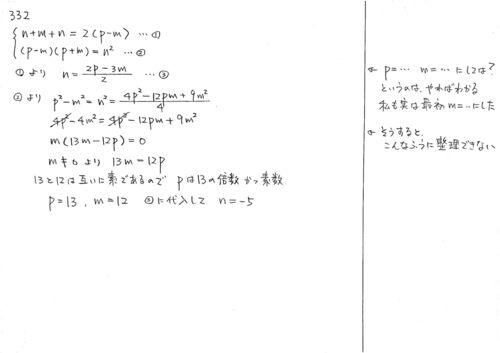 332
n+m+n = 2(p-m) … ①
(p-m)(p+m) = n² … ②
①より n = (2p-3m)/2 … ③
②より p²-m² = n² = (4p²-12pm+9m²)/4
4p²-4m² = 4p²-12pm+9m²
m(13m-12p) = 0
m≠0 より 13m = 12p
13と12は互いに素であるので pは13の倍数かつ素数
p=13, m=12 ③に代入して n=-5
p=… m=… にしては?
というのは、やればわかる
私も実は最初 m=…にした
そうすると、
こんなふうに整理できない